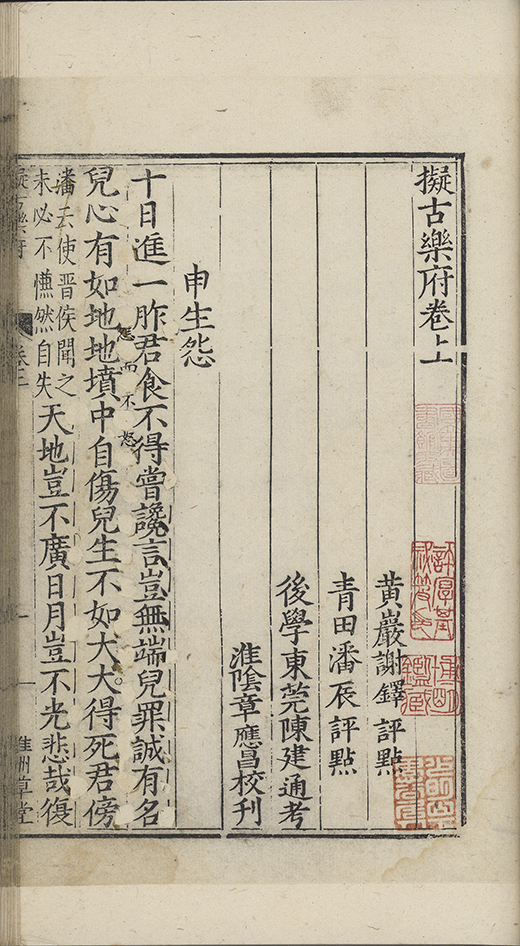 擬古樂府卷上
黃巖謝鐸評點
青田潘辰評點
後學東莞陳建通考
淮陰章應昌校刊
申生怨
十日進一胙君食不得嘗讒言豈無端兒罪誠有名
怨而不怒
兒心有如地地墳中自傷兒生不如犬犬得死君傍
潘云使晉侯聞之
未必不憮然自失
天地豈不廣日月豈不光悲哉復
擬古樂府
卷上
一
草堂